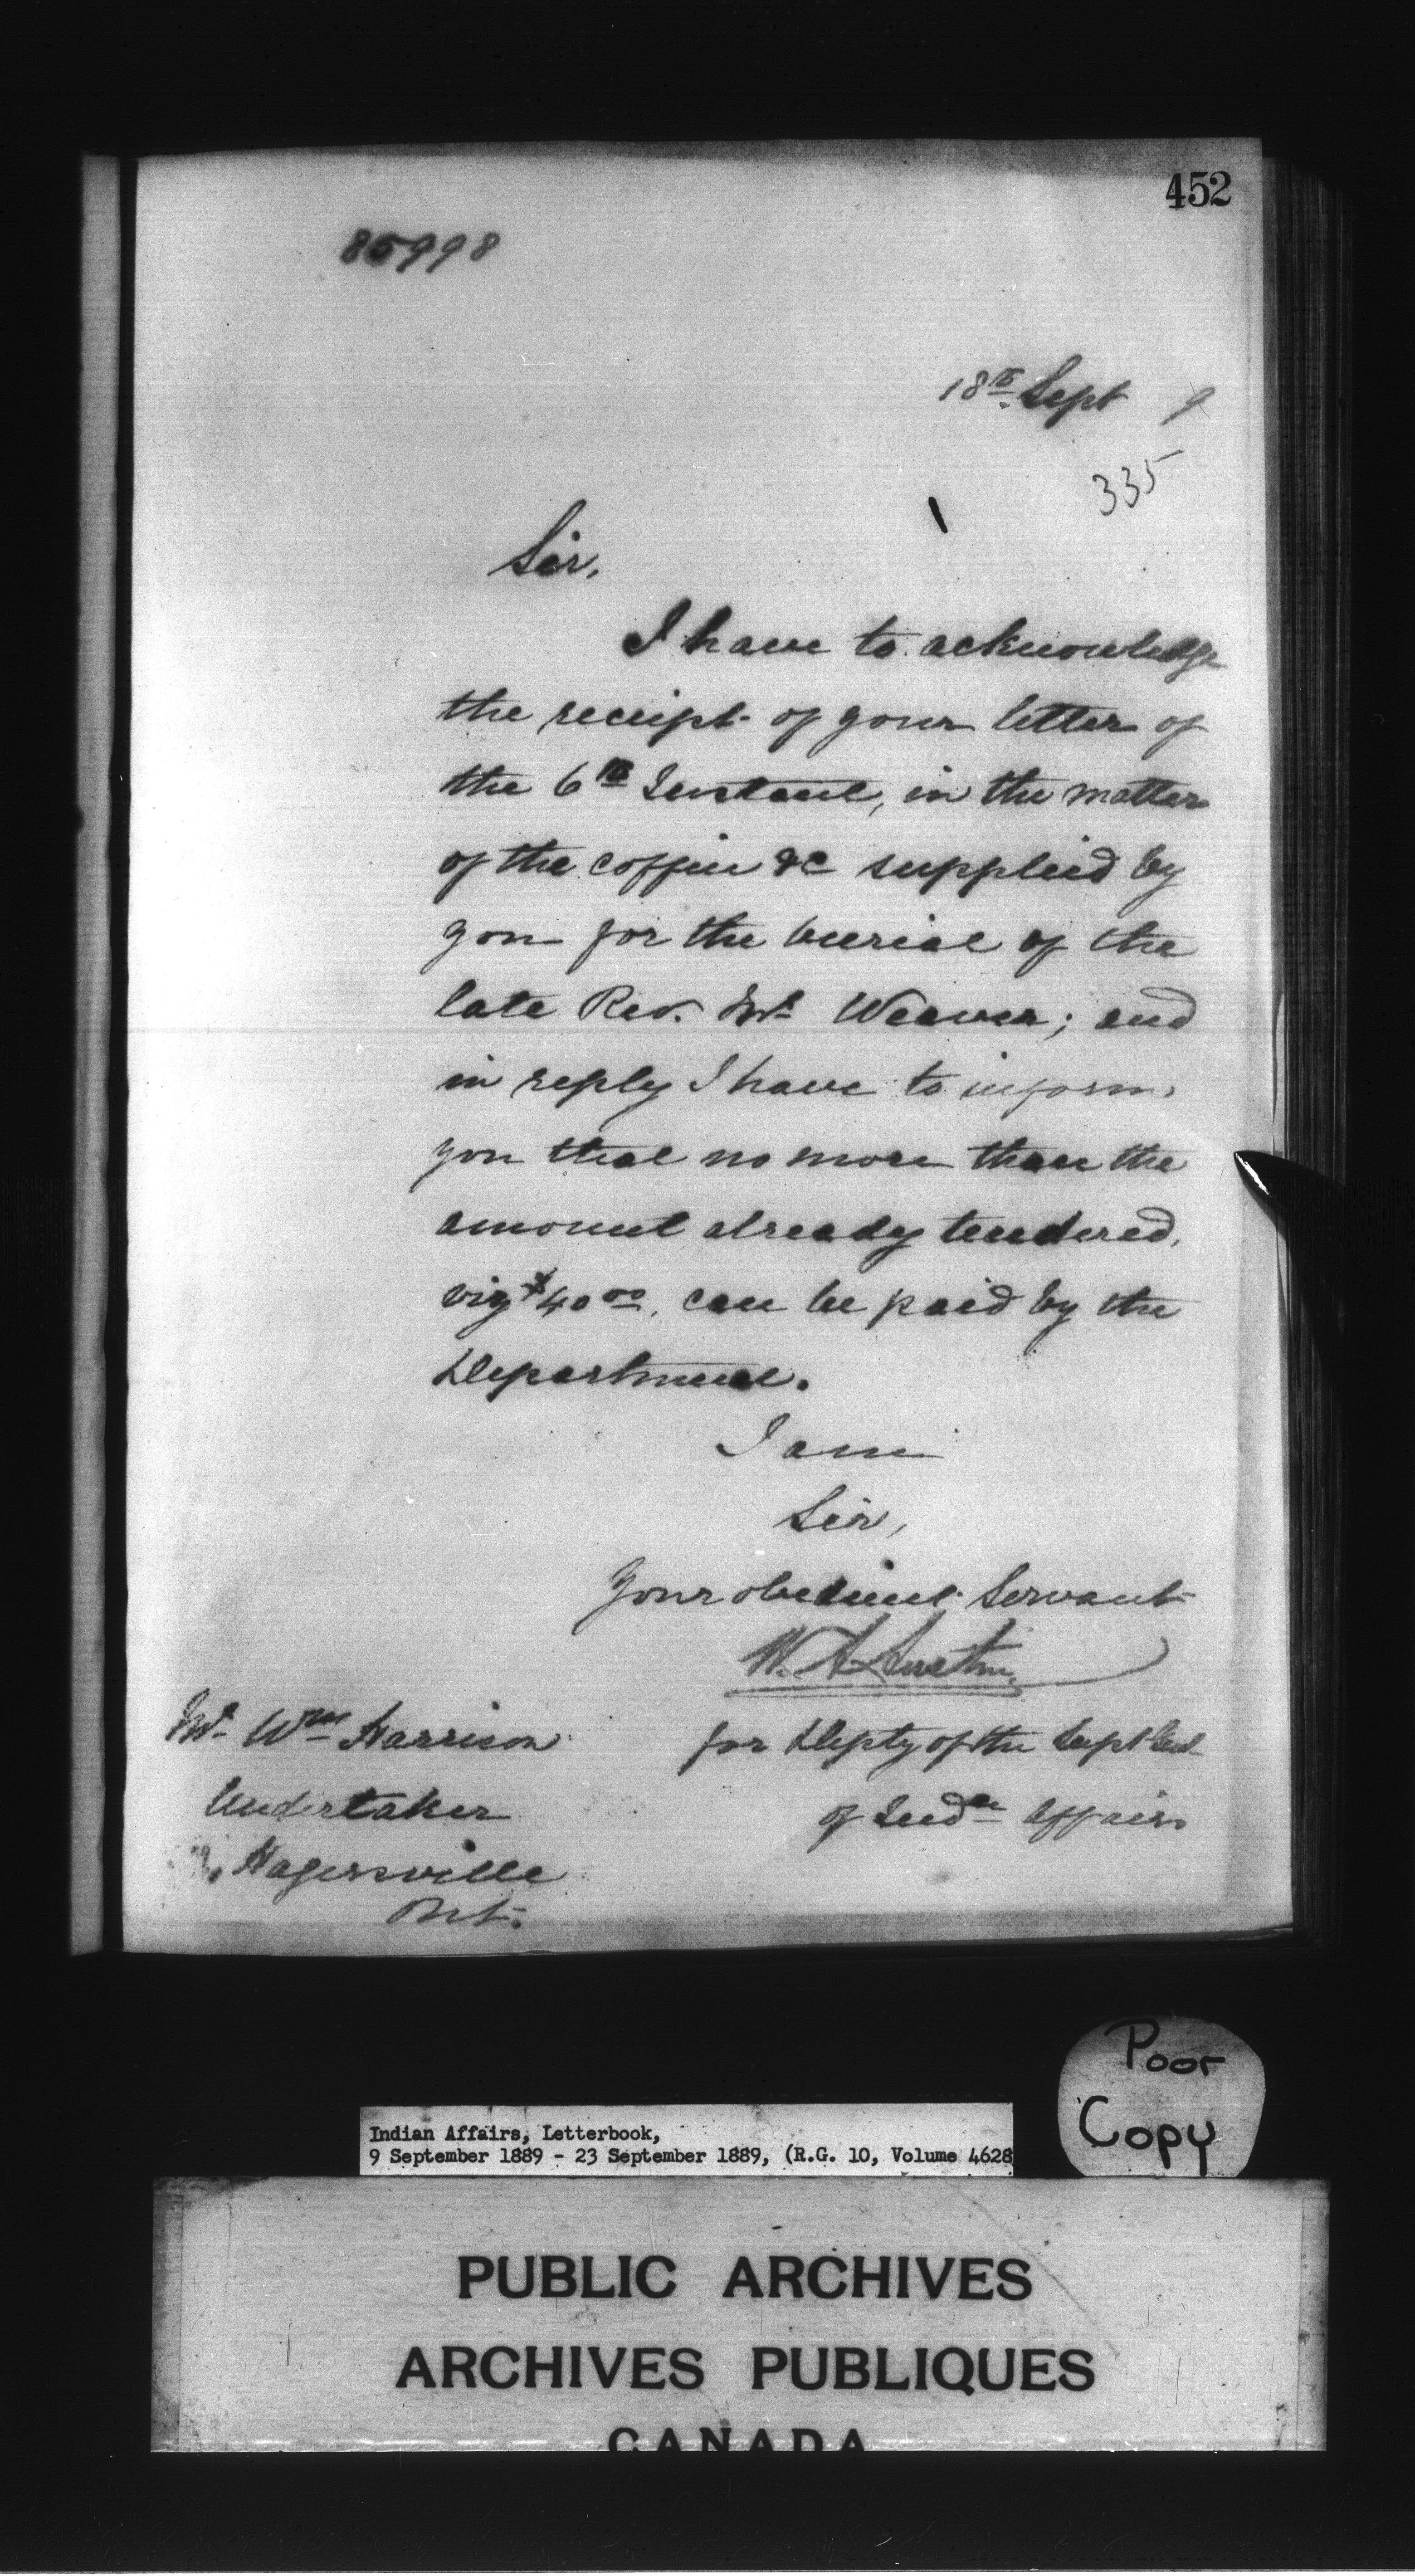 452
85998
18th Sept 9
335
Sir,
I have to acknowledge
the receipt of your letter of
the 6th Instant, in the matter
of the coffin &c supplied by
you for the burial of the
late Rev. Mr Weaver; and
in reply I have to inform
you that no more than the
amount already tendered,
viz $40 00, can be paid by the
Department.
I am
Sir,
Your obedient Servant
W. A. Austin
for Depty of the Supt Genl
of Indn Affairs
Mr Wm Harrison
Undertaker
Hagersville
Ont.
Poor
Copy
Indian Affairs, Letterbook,
9 September 1889 - 23 September 1889, (R.G. 10, Volume 4628
PUBLIC ARCHIVES
ARCHIVES PUBLIQUES
CANADA